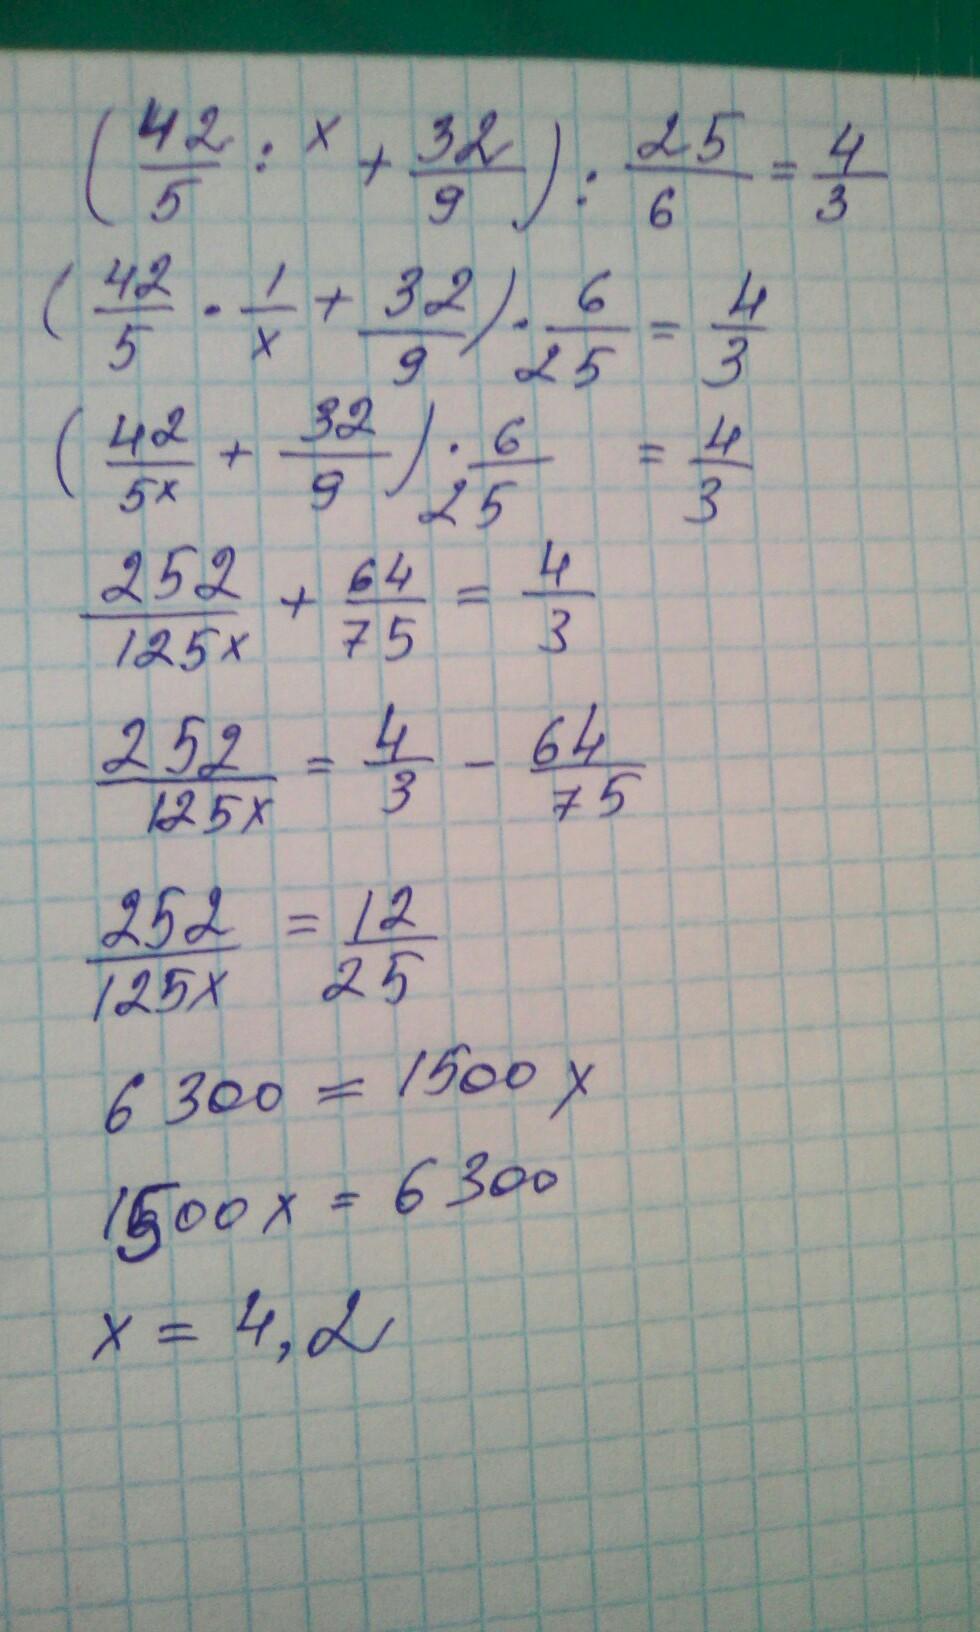 (42/5 : x + 32/9) : 25/6 = 4/3
(42/5 · 1/x + 32/9) · 6/25 = 4/3
(42/5x + 32/9) · 6/25 = 4/3
252/125x + 64/75 = 4/3
252/125x = 4/3 - 64/75
252/125x = 12/25
6300 = 1500x
1500x = 6300
x = 4,2